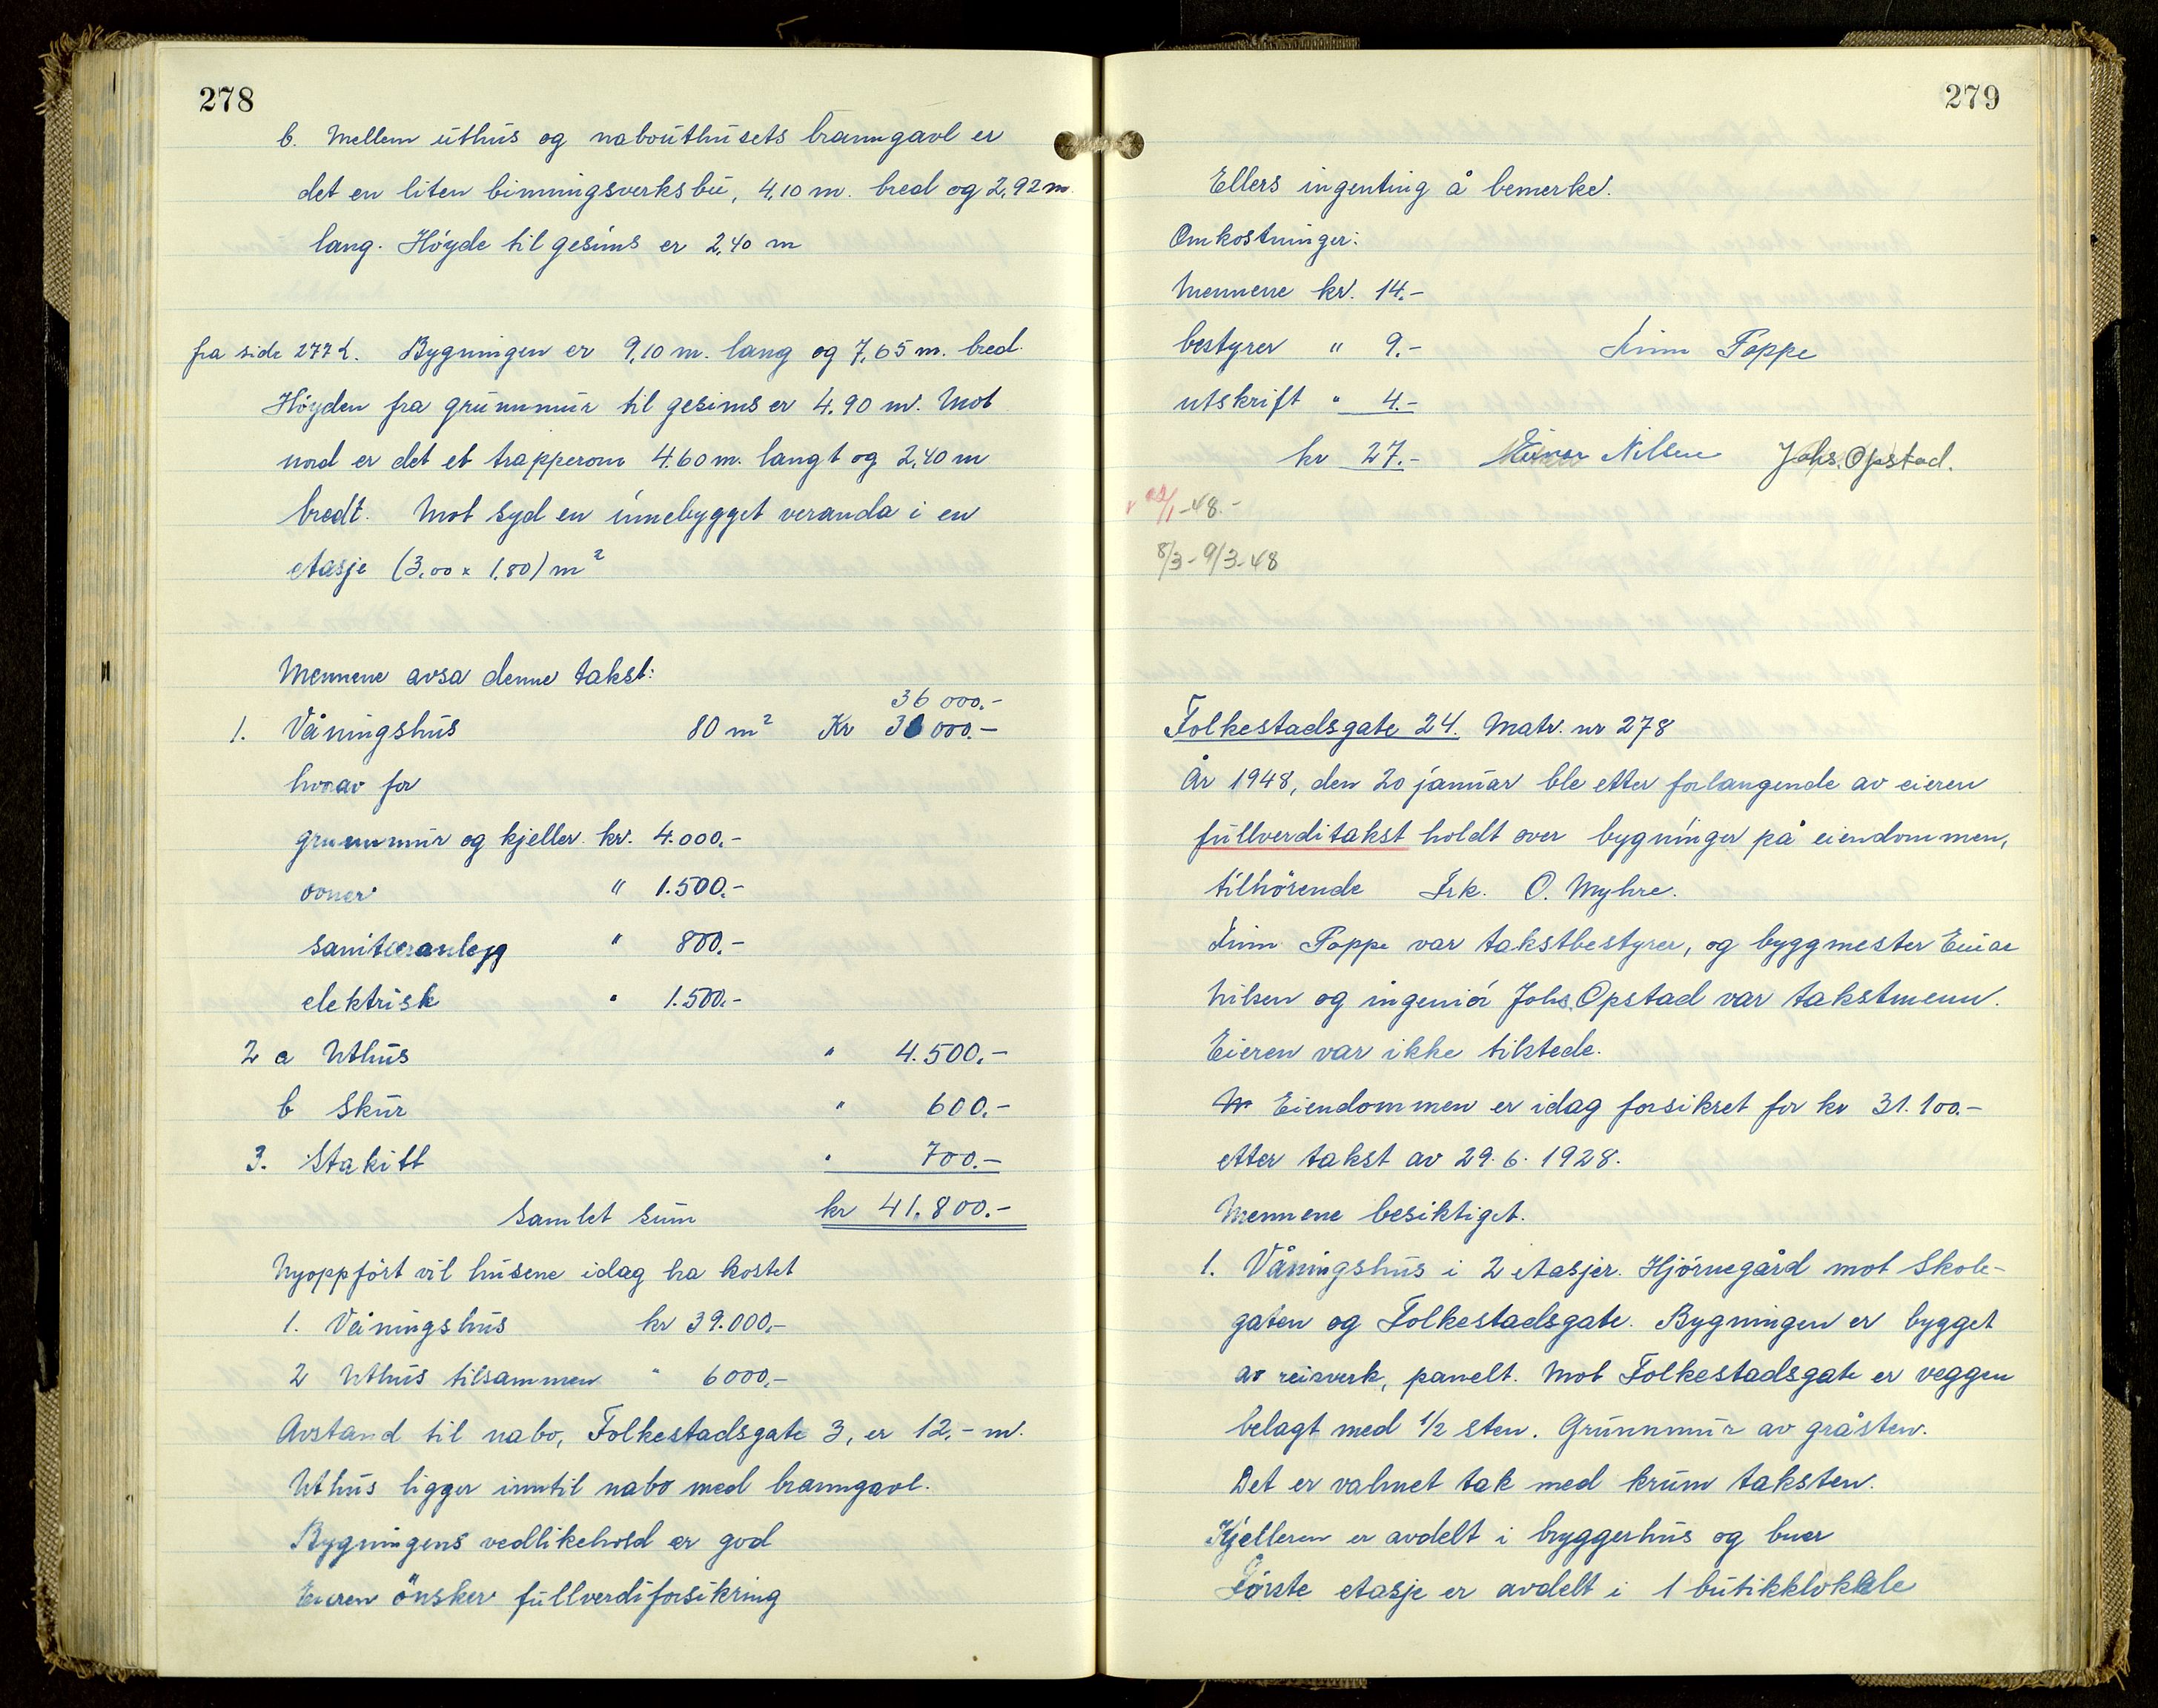 278
b. Mellem uthus og nabouthusets branngavl er
det en liten binningsverksbu, 4,10 m. bred og 2,92 m.
lang. Höyde til gesims er 2,40 m
fra side 277 1. Bygningen er 9,10 m. lang og 7,65 m. bred.
Höyden fra grunnmur til gesims er 4,90 m. Mot
nord er det et trapperom 4.60 m. langt og 2,40 m
bredt. Mot syd en innebygget veranda i en
etasje (3,00 x 1,80) m²
Mennene avsa denne takst:
36 000.-
1. Våningshus 80 m² Kr 36 000.-
hvorav for
grunnmur og kjeller kr. 4.000.-
ovner " 1.500.-
sanitæranlegg " 800.-
elektrisk " 1.500.-
2 a Uthus " 4.500.-
b Skur " 600.-
3. Stakitt " 700.-
Samlet sum kr 41.800.-
Nyoppfört vil husene idag ha kostet
1. Våningshus kr 39.000,-
2 Uthus tilsammen " 6000,-
Avstand til nabo, Folkestadsgate 3, er 12,- m.
Uthus ligger inntil nabo med branngavl.
Bygningens vedlikehold er god
Eieren önsker fullverdiforsikring
279
Ellers ingenting å bemerke.
Omkostninger:
Mennene kr. 14.-
bestyrer " 9.- Finn Poppe
utskrift " 4.-
kr 27.- Einar Nilsen Johs. Opstad.
/1-48.-
8/3-9/3-48
Folkestadsgate 24. Matr. nr 278
År 1948, den 20 januar ble etter forlangende av eieren
fullverditakst holdt over bygninger på eiendommen,
tilhörende Frk. O. Myhre.
Finn Poppe var takstbestyrer, og byggmester Einar
Nilsen og ingeniör Johs. Opstad var takstmenn.
Eieren var ikke tilstede.
Eiendommen er idag forsikret for kr 31.100.-
etter takst av 29.6.1928.
Mennene besiktiget.
1. Våningshus i 2 etasjer. Hjörnegård mot Skole-
gaten og Folkestadsgate. Bygningen er bygget
av reisverk, panelt. Mot Folkestadsgate er veggen
belagt med 1/2 sten. Grunnmur av gråsten.
Det er valmet tak med krum taksten.
Kjelleren er avdelt i bryggerhus og buer
Förste etasje er avdelt i 1 butikklokale